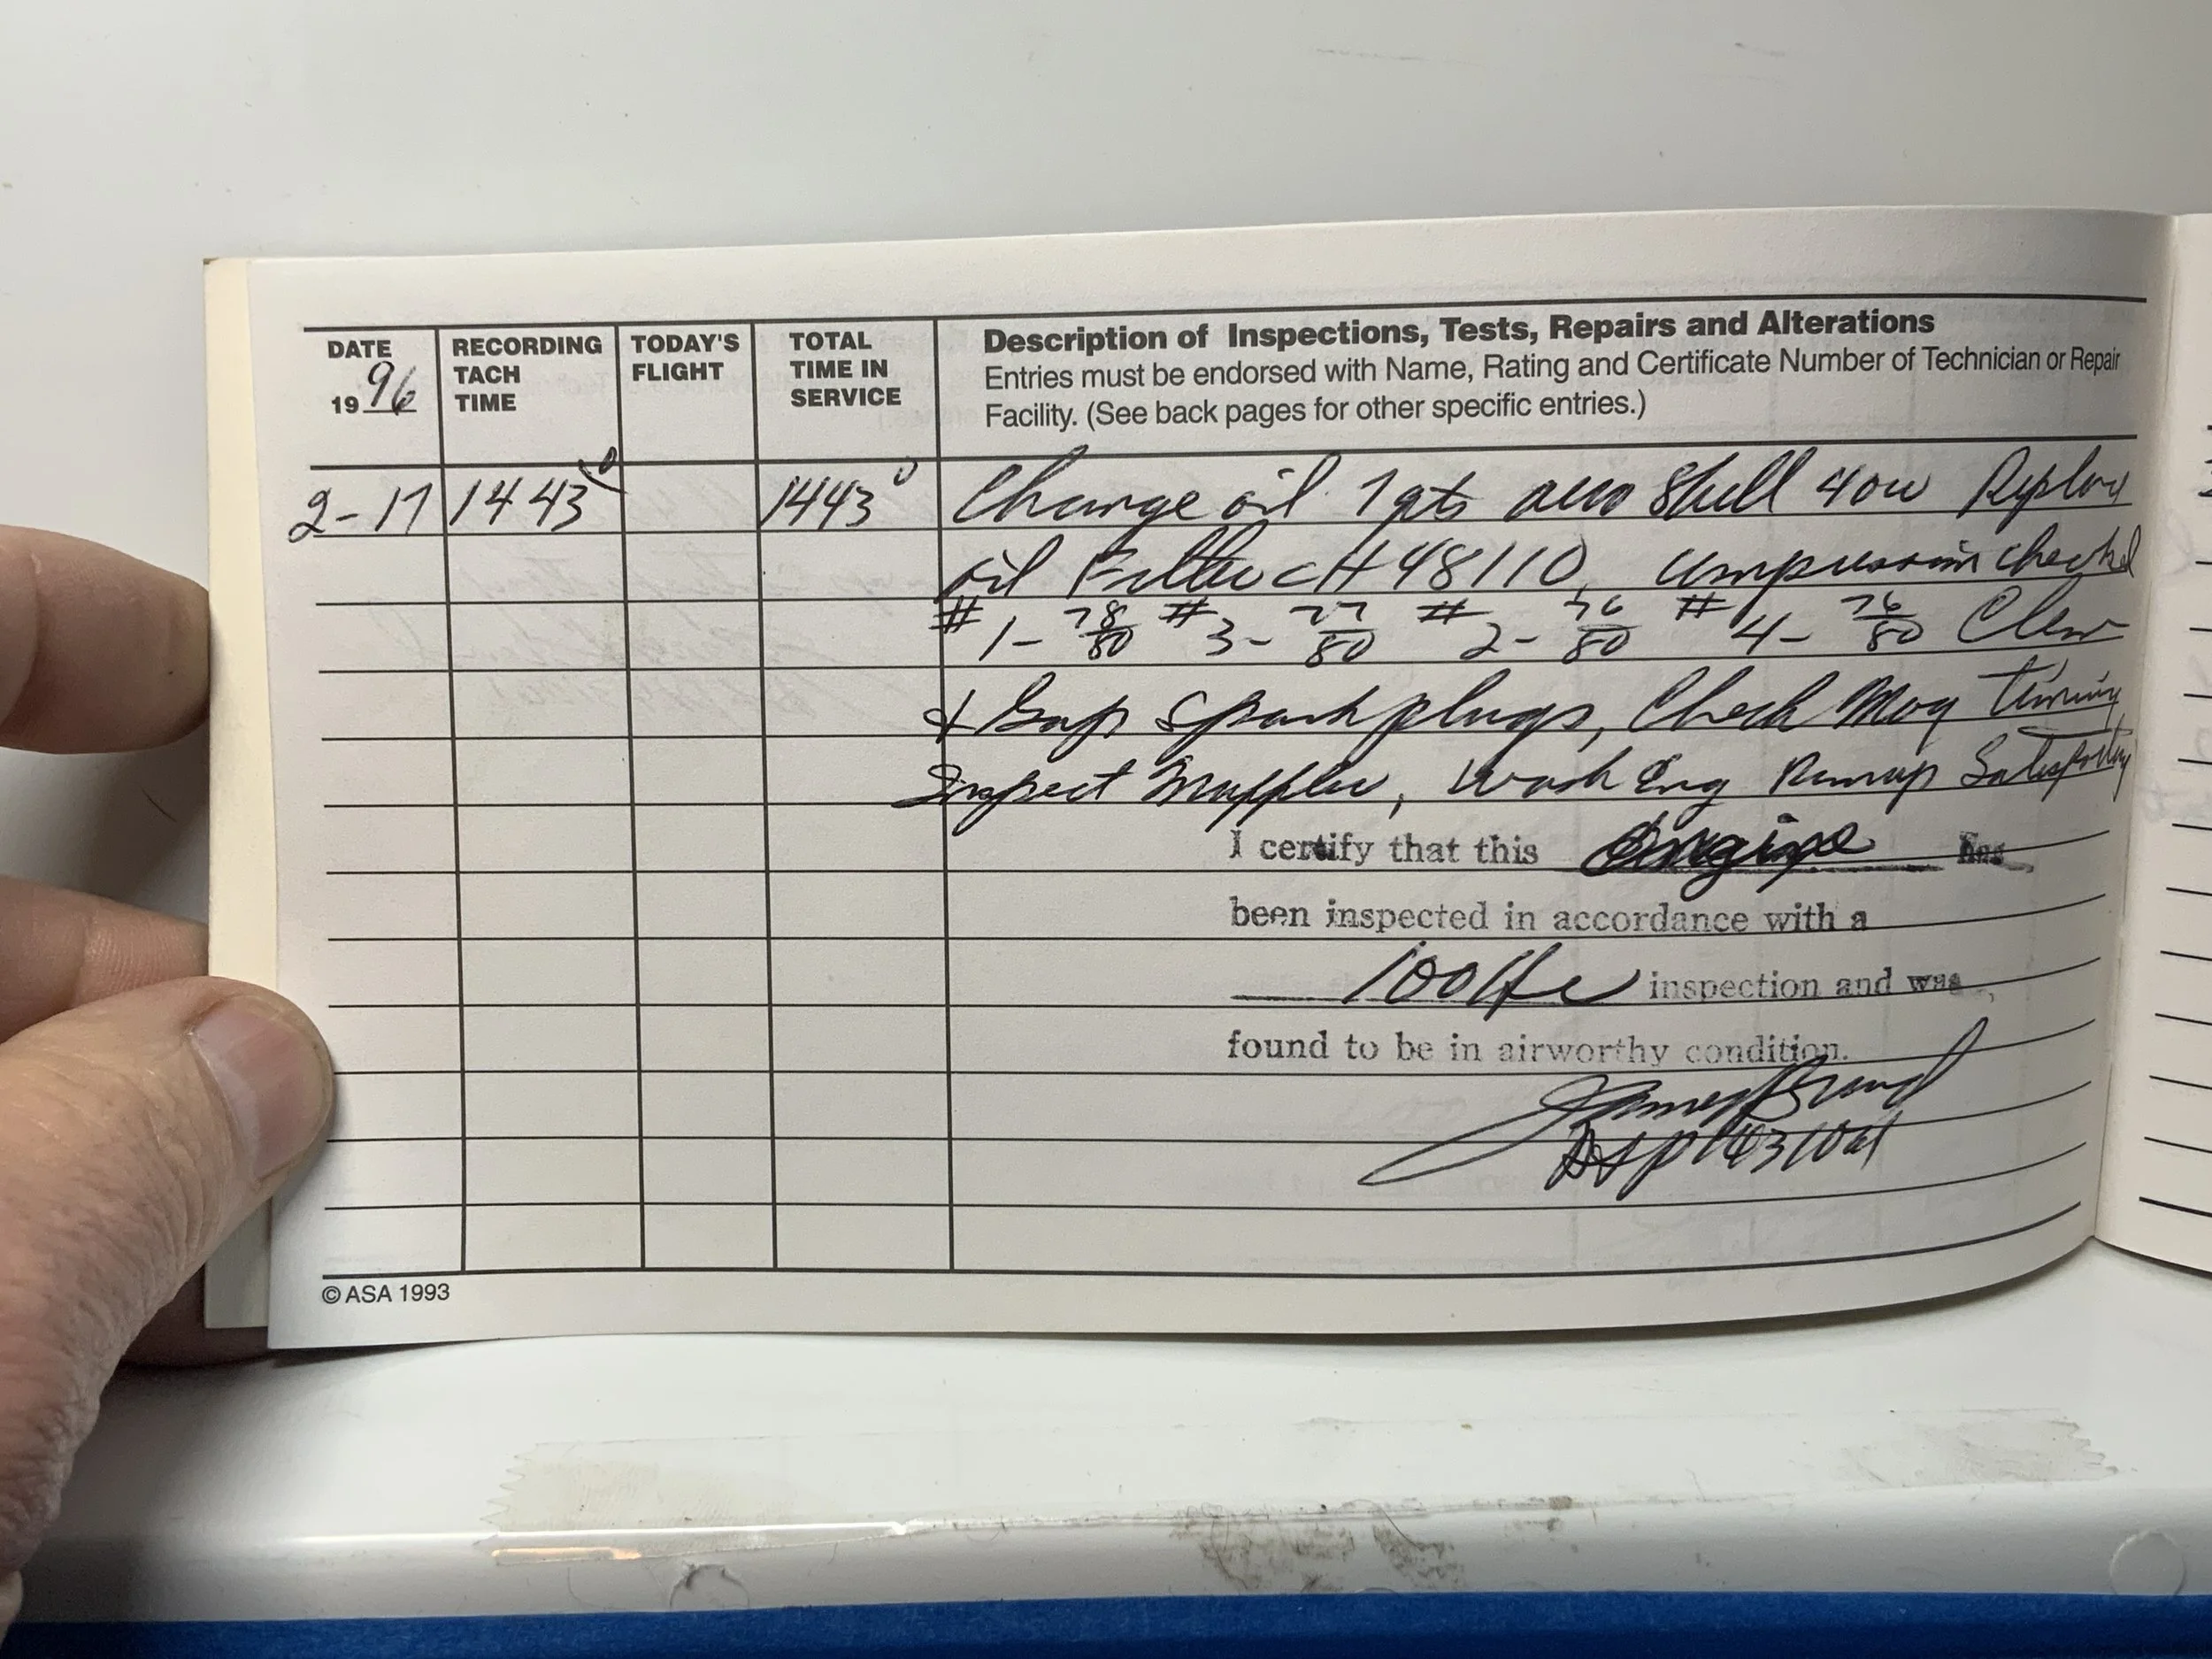 DATE
19 96
RECORDING
TACH
TIME
TODAY'S
FLIGHT
TOTAL
TIME IN
SERVICE
Description of Inspections, Tests, Repairs and Alterations
Entries must be endorsed with Name, Rating and Certificate Number of Technician or Repair
Facility. (See back pages for other specific entries.)
2-17 1443 0 1443 0 Change oil 7 qts aero Shell 40w Replace
oil Filter CH48110, Compression checked
#1- 78/80 #3- 77/80 #2- 76/80 #4- 76/80 Clean
+ Gap Spark plugs, Check Mag Timing
Inspect Muffler, Wash Eng Runup Satisfactory
I certify that this Engine has
been inspected in accordance with a
100Hr inspection and was
found to be in airworthy condition.
James
© ASA 1993